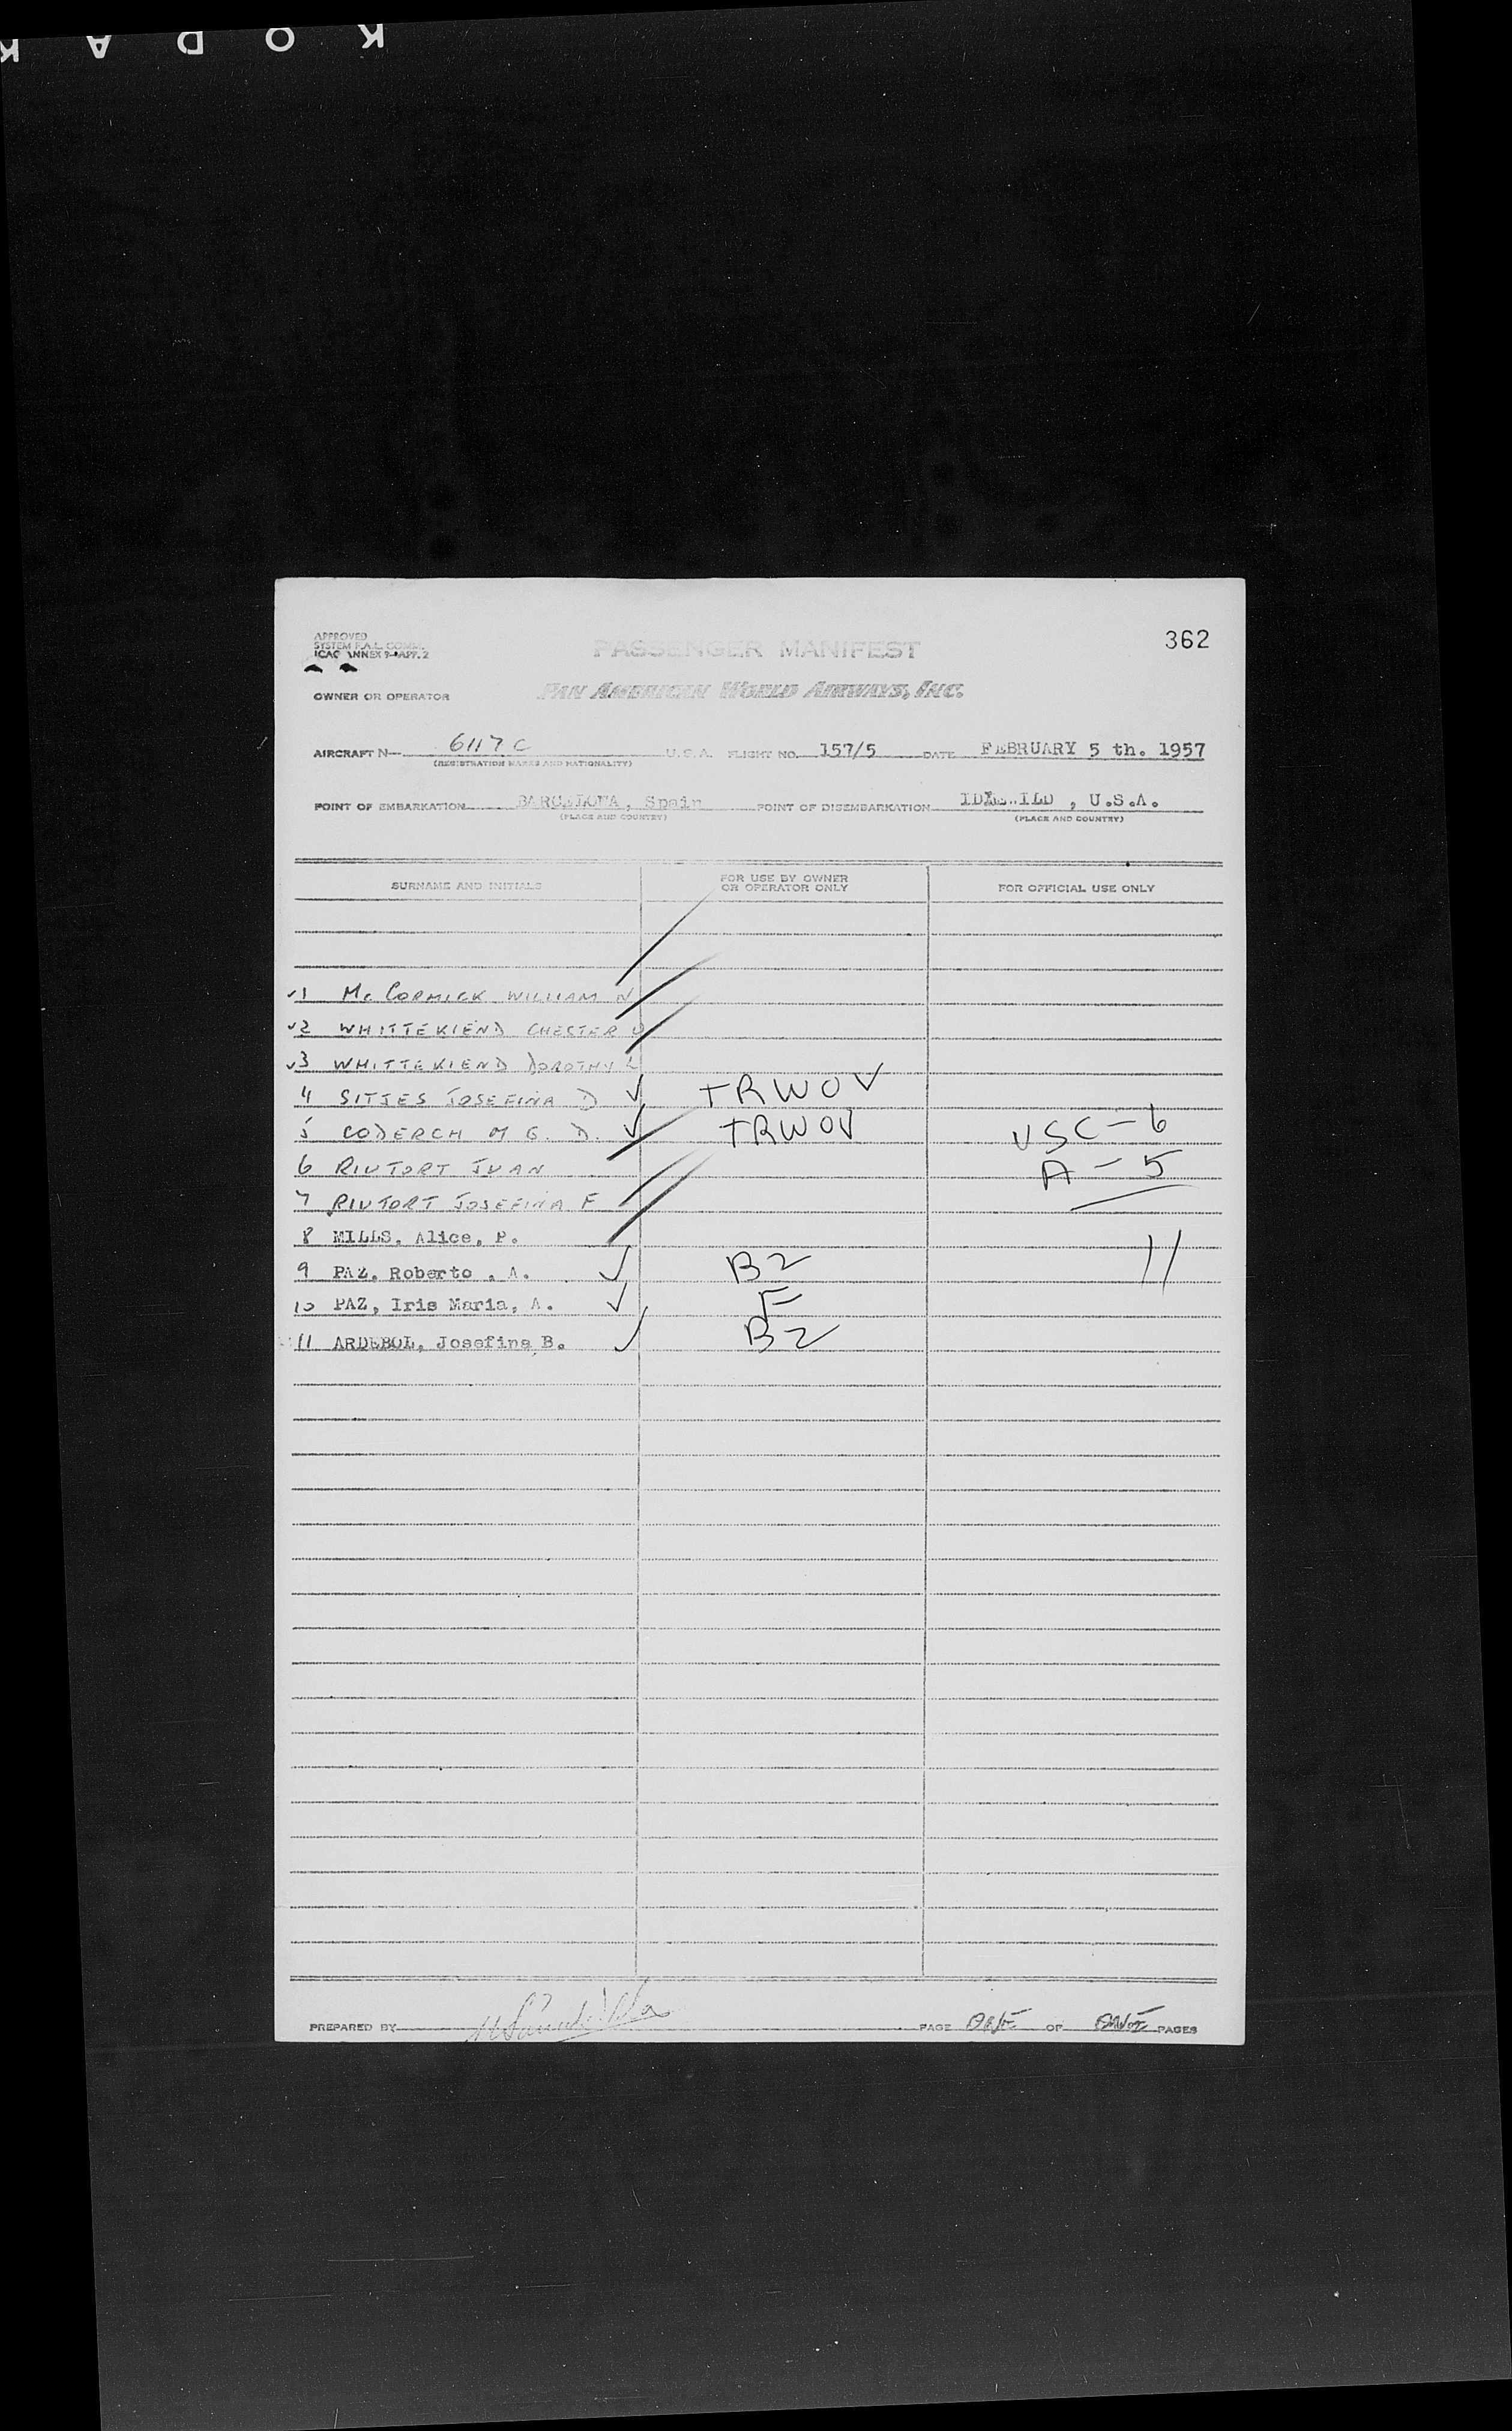 KODAK
362
APPROVED
SYSTEM F.A.L. COMM.
ICAO ANNEX 9-APP. 2
PASSENGER MANIFEST
OWNER OR OPERATOR PAN AMERICAN WORLD AIRWAYS, INC.
AIRCRAFT N— 6117C U.S.A. FLIGHT NO. 157/5 DATE FEBRUARY 5 th. 1957
(REGISTRATION MARKS AND NATIONALITY)
POINT OF EMBARKATION BARCELONA, Spain POINT OF DISEMBARKATION IDLEWILD , U.S.A.
(PLACE AND COUNTRY) (PLACE AND COUNTRY)
SURNAME AND INITIALS FOR USE BY OWNER OR OPERATOR ONLY FOR OFFICIAL USE ONLY
√1 McCORMICK WILLIAM N
√2 WHITTEKIEND CHESTER O
√3 WHITTEKIEND DOROTHY L
4 SITJES JOSEFINA D √ TRWOV
5 CODERCH M G. D. √ TRWOV USC—6
6 RIUTORT JUAN A—5
7 RIUTORT JOSEFINA F
8 MILLS, Alice, P. 11
9 PAZ, Roberto , A. √ B2
10 PAZ, Iris Maria, A. √ F
11 ARDEBOL, Josefina B. √ B2
PREPARED BY PAGE ONE OF ONE PAGES